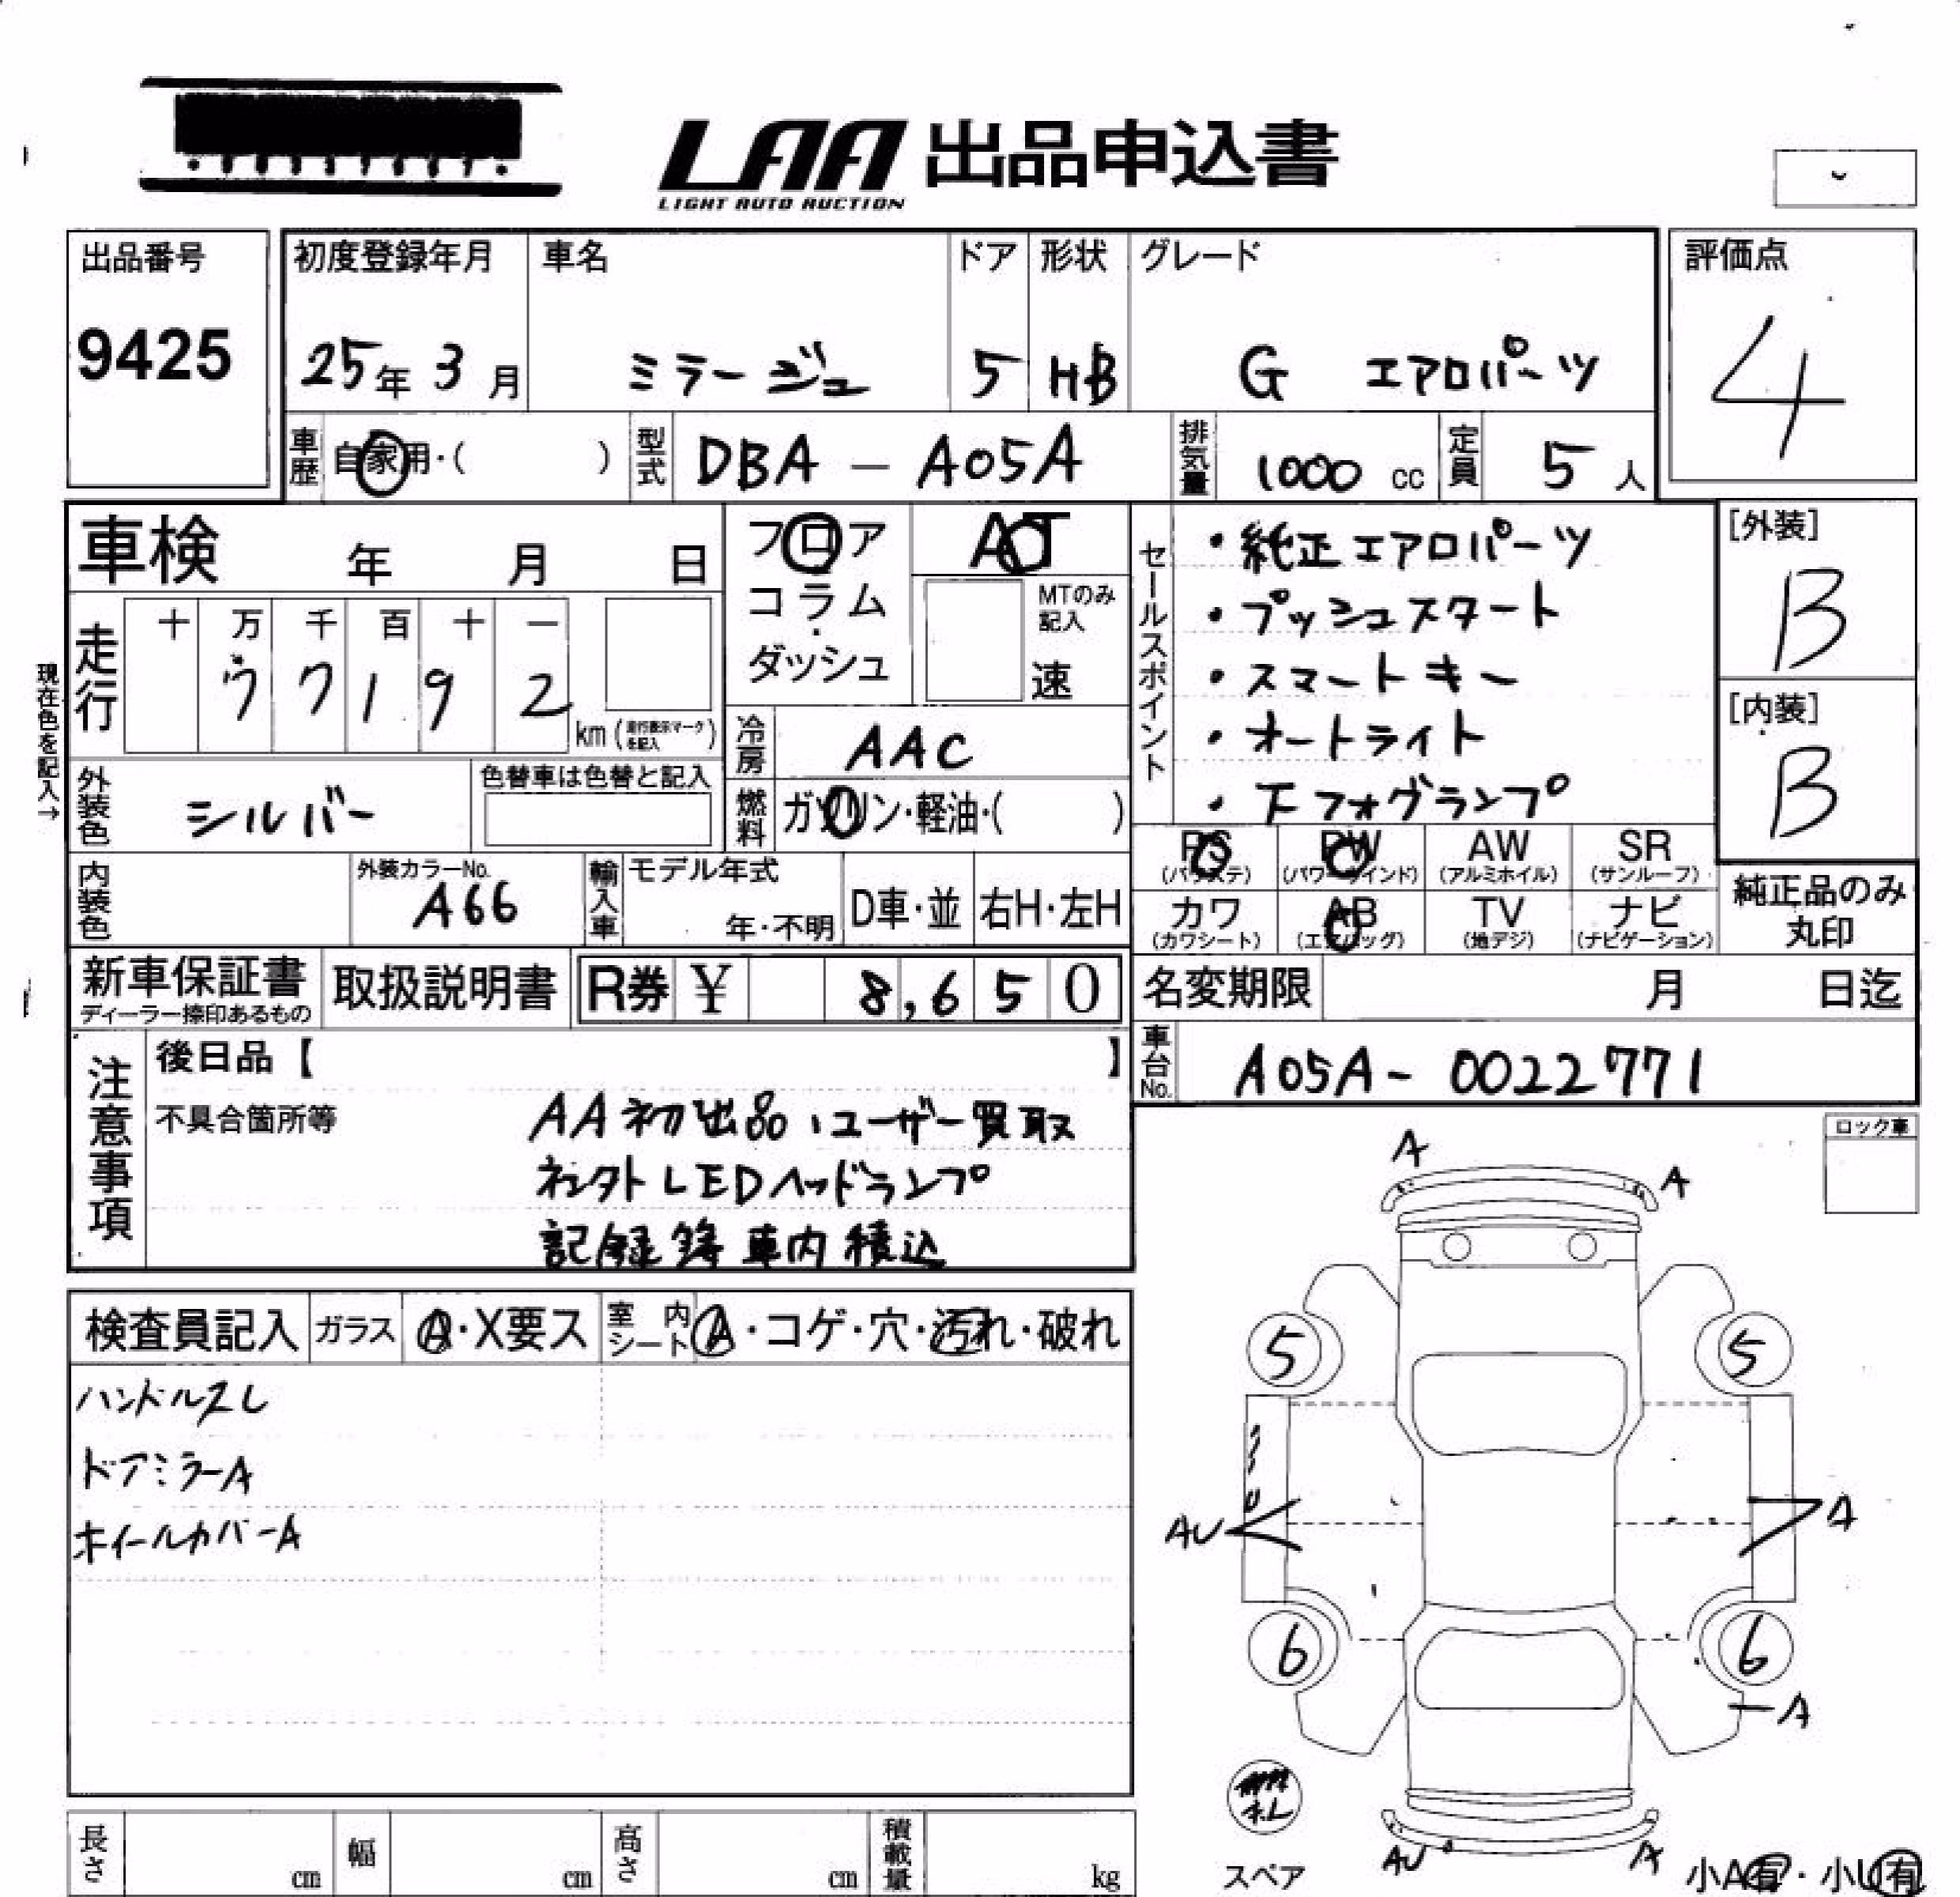 LAA 出品申込書
LIGHT AUTO AUCTION
出品番号
9425
初度登録年月 車名 ドア 形状 グレード
25年 3月 ミラージュ 5 HB G エアロパーツ
評価点
4
車歴 自家用・( ) 型式 DBA - A05A 排気量 1000 cc 定員 5 人
車検 年 月 日
フロア
コラム・
ダッシュ
AT
MTのみ記入
速
現在色を記入→
走行 十 万 千 百 十 一
7 7 1 9 2 km (走行表示マークを記入)
冷房 AAC
外装色 シルバー 色替車は色替と記入
燃料 ガソリン・軽油・( )
内装色 外装カラーNo. A66
輸入車 モデル年式 年・不明 D車・並 右H・左H
セールスポイント
・純正エアロパーツ
・プッシュスタート
・スマートキー
・オートライト
・下フォグランプ
[外装]
B
[内装]
B
PS (パワステ) PW (パワーウインド) AW (アルミホイル) SR (サンルーフ)
カワ (カワシート) AB (エアバッグ) TV (地デジ) ナビ (ナビゲーション)
純正品のみ丸印
新車保証書 ディーラー捺印あるもの 取扱説明書 R券 ¥ 8,650
名変期限 月 日迄
車台No. A05A- 0022771
注意事項
後日品【 】
不具合箇所等
AA初出品、ユーザー買取
社外LEDヘッドランプ
記録簿車内積込
ロック車
検査員記入 ガラス A・X要ス 室内シート A・コゲ・穴・汚れ・破れ
ハンドルスレ
ドアミラーA
ホイールカバーA
A
A
5
5
AU
A
6
6
A
AU
A
スペア
小A有・小U有
長さ cm 幅 cm 高さ cm 積載量 kg